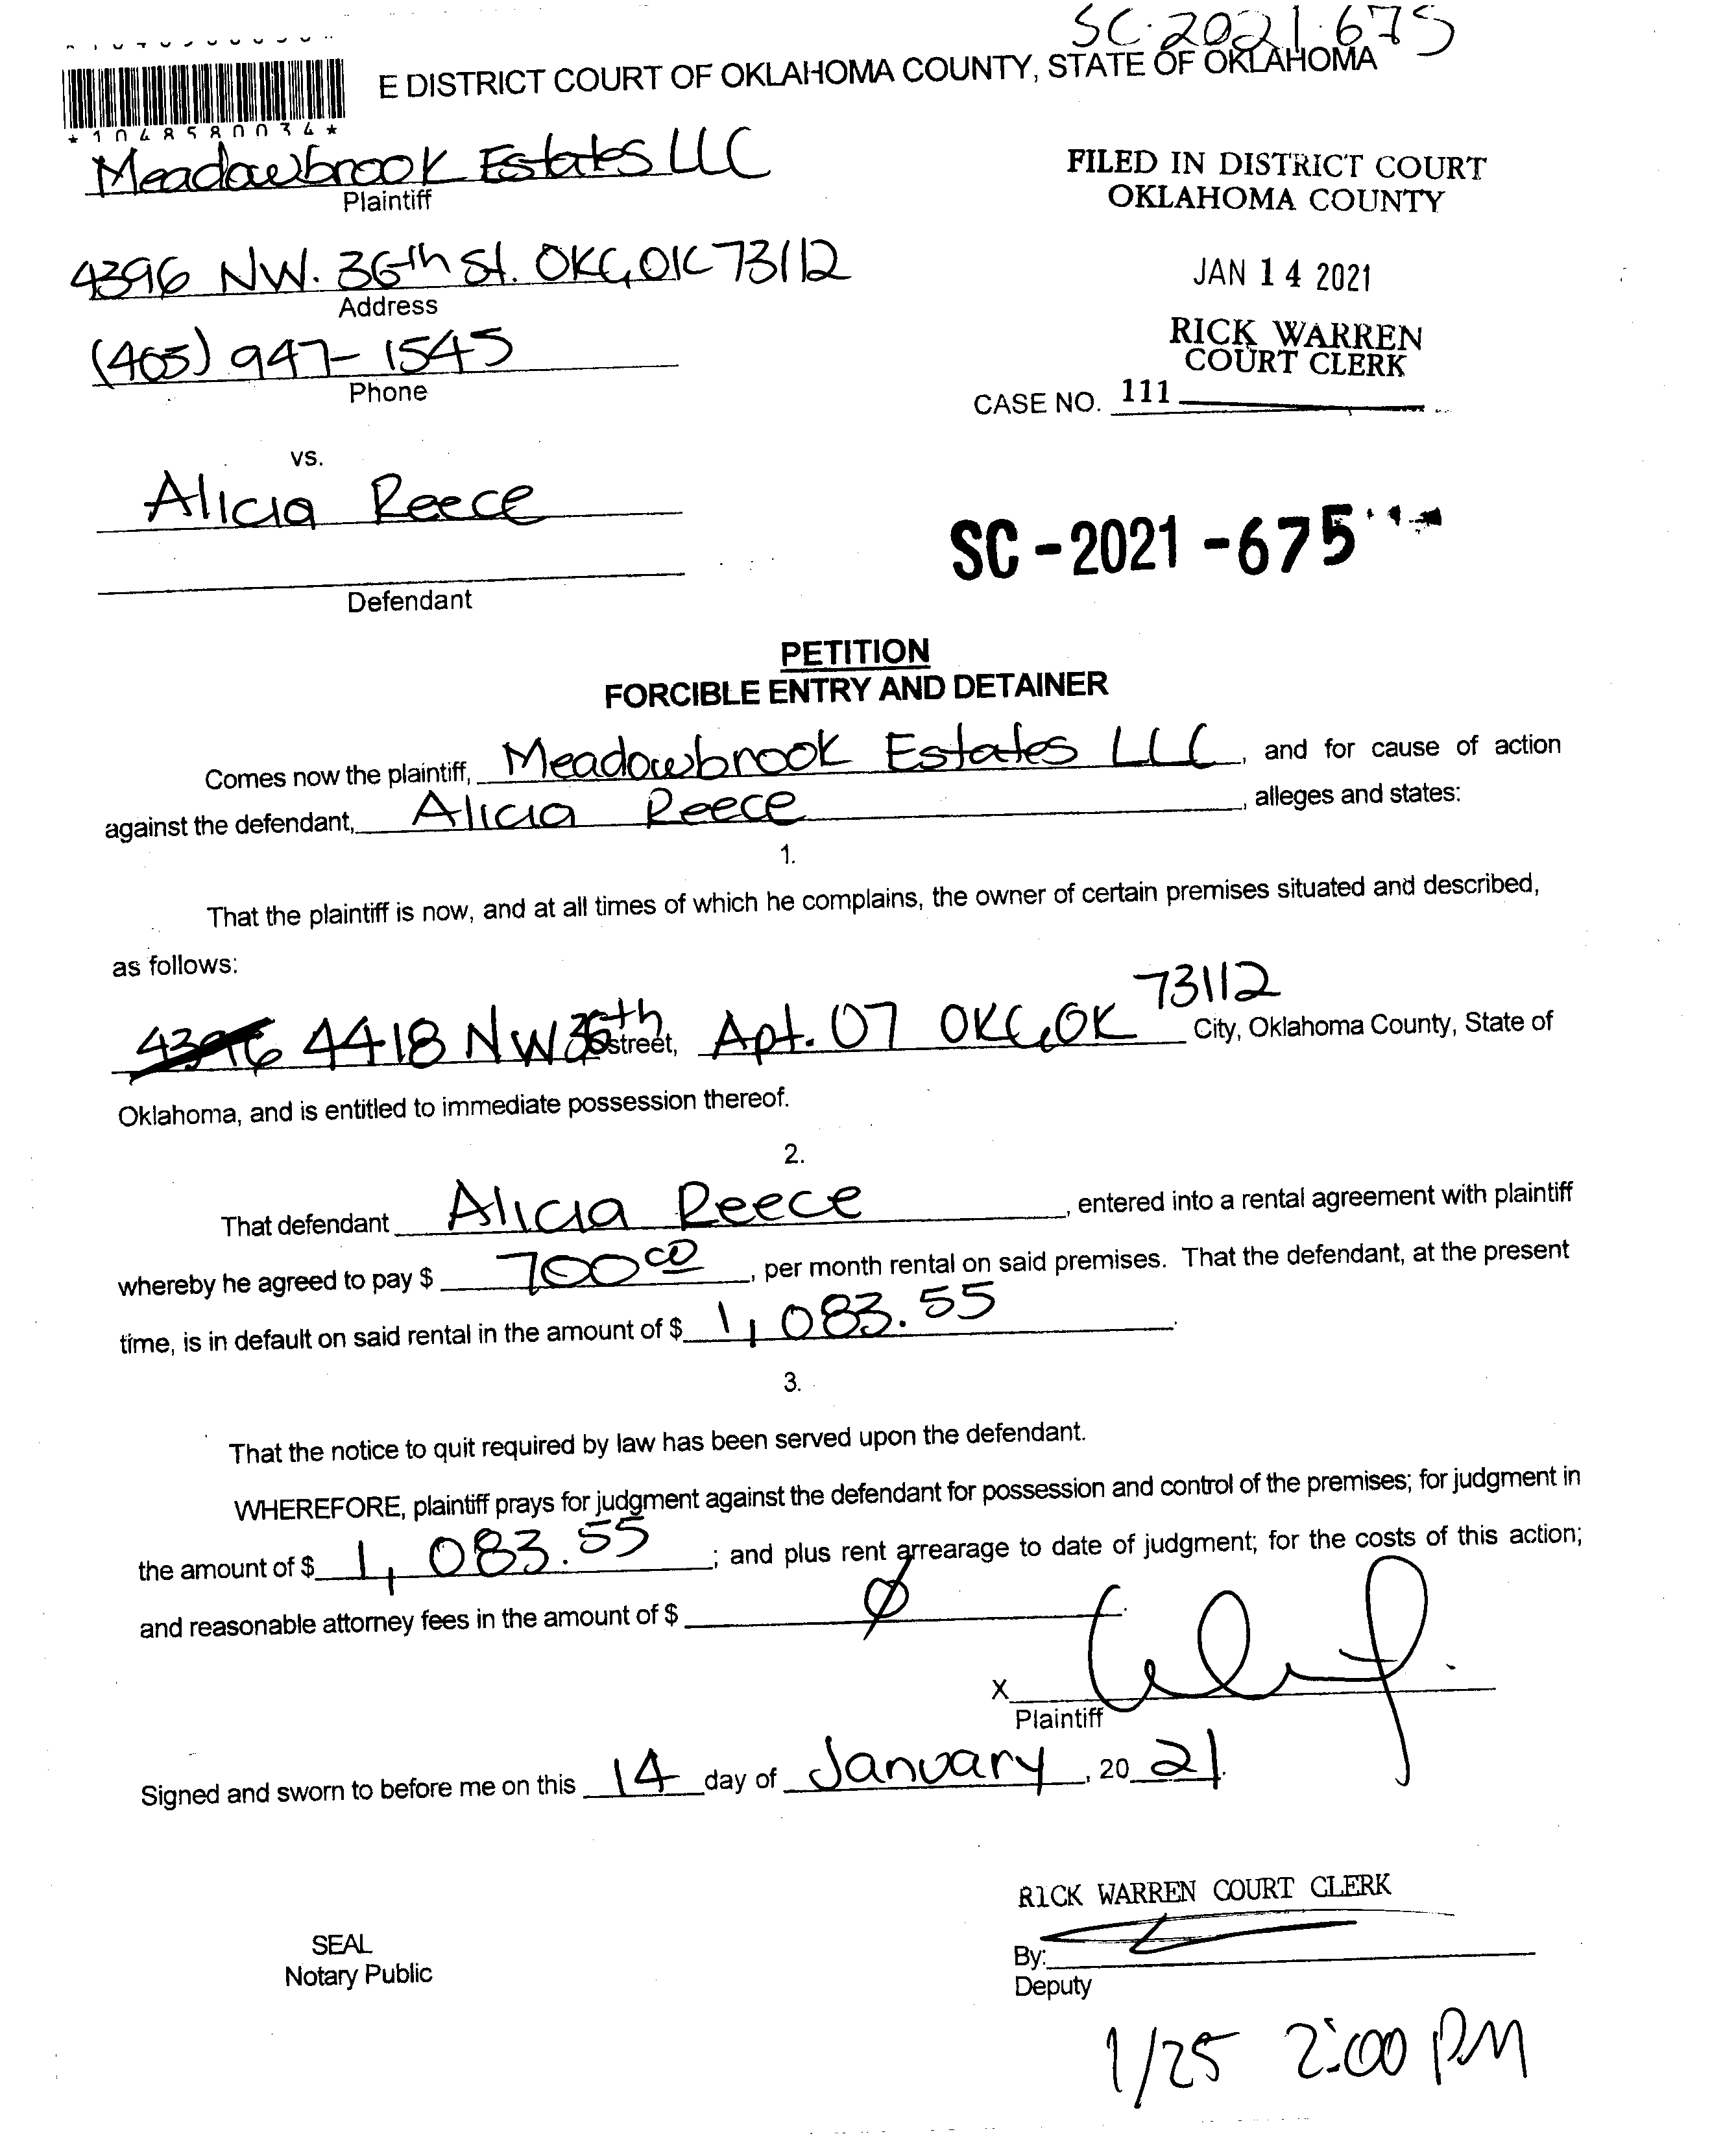 SC-2021-675
E DISTRICT COURT OF OKLAHOMA COUNTY, STATE OF OKLAHOMA
*1048580034*
Meadowbrook Estates LLC
Plaintiff
FILED IN DISTRICT COURT
OKLAHOMA COUNTY
4396 NW. 36th St. OKC, OK 73112
Address
JAN 14 2021
(405) 947-1545
Phone
RICK WARREN
COURT CLERK
CASE NO. 111
vs.
Alicia Reece
Defendant
SC-2021-675
PETITION
FORCIBLE ENTRY AND DETAINER
Comes now the plaintiff, Meadowbrook Estates LLC, and for cause of action
against the defendant, Alicia Reece, alleges and states:
1.
That the plaintiff is now, and at all times of which he complains, the owner of certain premises situated and described,
as follows:
73112
4396 4418 NW 36th street, Apt. 07 OKC, OK City, Oklahoma County, State of
Oklahoma, and is entitled to immediate possession thereof.
2.
That defendant Alicia Reece, entered into a rental agreement with plaintiff
whereby he agreed to pay $ 700 00, per month rental on said premises. That the defendant, at the present
time, is in default on said rental in the amount of $ 1,083.55.
3.
That the notice to quit required by law has been served upon the defendant.
WHEREFORE, plaintiff prays for judgment against the defendant for possession and control of the premises; for judgment in
the amount of $ 1,083.55; and plus rent arrearage to date of judgment; for the costs of this action;
and reasonable attorney fees in the amount of $ Ø.
X
Plaintiff
Signed and sworn to before me on this 14 day of January, 20 21.
RICK WARREN COURT CLERK
SEAL
Notary Public
By:
Deputy
1/25 2:00 PM